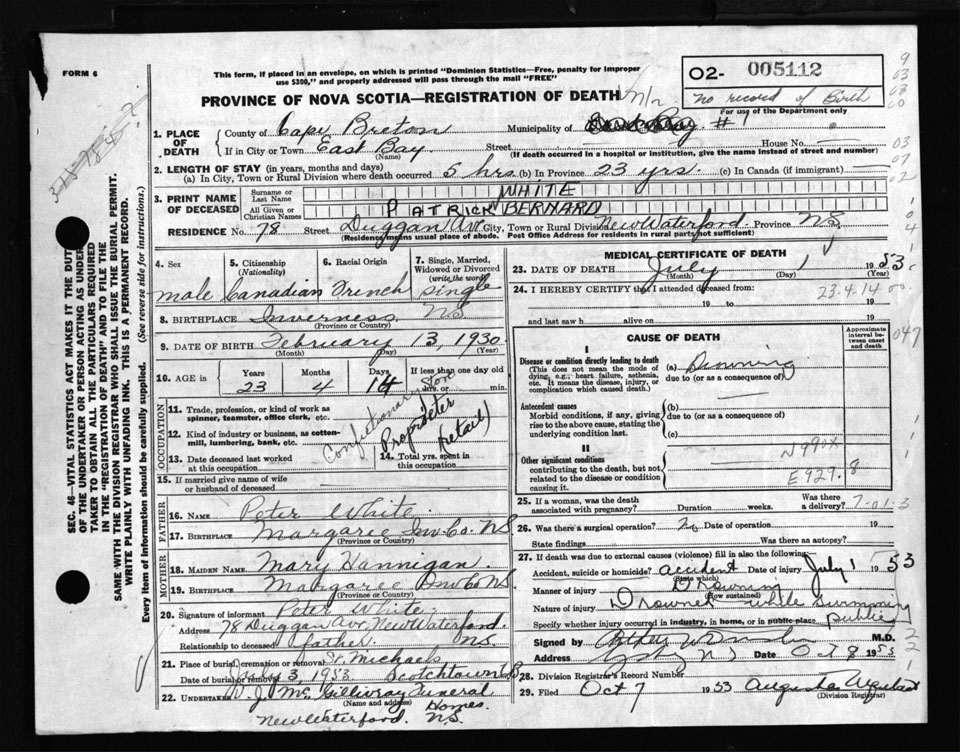 FORM 6
This form, if placed in an envelope, on which is printed "Dominion Statistics—Free, penalty for improper
use $300," and properly addressed will pass through the mail "FREE"
O2- 005112
no record of Birth
For use of the Department only
PROVINCE OF NOVA SCOTIA—REGISTRATION OF DEATH
1. PLACE OF DEATH
County of Cape Breton Municipality of #1
If in City or Town East Bay Street House No.
(Name) (If death occurred in a hospital or institution, give the name instead of street and number)
2. LENGTH OF STAY (in years, months and days)
(a) In City, Town or Rural Division where death occurred 5 hrs. (b) In Province 23 yrs. (c) In Canada (if immigrant)
3. PRINT NAME OF DECEASED
Surname or Last Name WHITE
All Given or Christian Names PATRICK BERNARD
RESIDENCE No. 78 Street Duggan Ave City, Town or Rural Division New Waterford Province N.S.
(Residence means usual place of abode. Post Office Address for residents in rural parts not sufficient)
4. Sex
male
5. Citizenship (Nationality)
Canadian
6. Racial Origin
French
7. Single, Married, Widowed or Divorced (write the word)
Single
8. BIRTHPLACE Inverness N.S.
(Province or Country)
9. DATE OF BIRTH February 13, 1930
(Month) (Day) (Year)
10. AGE in Years Months Days If less than one day old
23 4 14 hrs. or min.
OCCUPATION
11. Trade, profession, or kind of work as spinner, teamster, office clerk, etc.
12. Kind of industry or business, as cotton-mill, lumbering, bank, etc.
Confectionary Store
Proprietor
(retail)
13. Date deceased last worked at this occupation
14. Total yrs. spent in this occupation
15. If married give name of wife or husband of deceased
FATHER
16. NAME Peter White
17. BIRTHPLACE Margaree Inv. Co. N.S.
(Province or Country)
MOTHER
18. MAIDEN NAME Mary Hannigan
19. BIRTHPLACE Margaree Inv Co N.S.
(Province or Country)
20. Signature of informant Peter White
Address 78 Duggan Ave, New Waterford.
Relationship to deceased father N.S.
21. Place of burial, cremation or removal St. Michaels
Date of burial or removal July 3, 1953. Scotchtown
22. UNDERTAKER Mc Gillivray Funeral
(Name and address) Homes.
New Waterford. N.S.
MEDICAL CERTIFICATE OF DEATH
23. DATE OF DEATH July 1 1953.
(Month) (Day) (Year)
24. I HEREBY CERTIFY that I attended deceased from:
23.4.14
19 to 19
and last saw h alive on 19
CAUSE OF DEATH
Approximate interval between onset and death
I
Disease or condition directly leading to death
(This does not mean the mode of dying, e.g., heart failure, asthenia, etc. It means the disease, injury, or complication which caused death.)
(a) Drowning
due to (or as a consequence of)
Antecedent causes
Morbid conditions, if any, giving rise to the above cause, stating the underlying condition last.
(b)
due to (or as a consequence of)
(c)
II
Other significant conditions
contributing to the death, but not related to the disease or condition causing it.
N990X
E929.8
25. If a woman, was the death associated with pregnancy? Duration weeks. Was there a delivery?
7-01-3
26. Was there a surgical operation? No Date of operation 19
State findings Was there an autopsy?
27. If death was due to external causes (violence) fill in also the following:
Accident, suicide or homicide? accident Date of injury July 1 1953
(State which)
Manner of injury
(How sustained)
Nature of injury
Specify whether injury occurred in industry, in home, or in public place public
Signed by M.D.
Address Date Oct 8 1953
28. Division Registrar's Record Number
29. Filed Oct 7 1953 Augusta
(Division Registrar)
SEC. 46—VITAL STATISTICS ACT MAKES IT THE DUTY
OF THE UNDERTAKER OR PERSON ACTING AS UNDER-
TAKER TO OBTAIN ALL THE PARTICULARS REQUIRED
IN THE "REGISTRATION OF DEATH" AND TO FILE THE
SAME WITH THE DIVISION REGISTRAR WHO SHALL ISSUE THE BURIAL PERMIT.
WRITE PLAINLY WITH UNFADING INK. THIS IS A PERMANENT RECORD.
Every item of information should be carefully supplied. (See reverse side for instructions.)